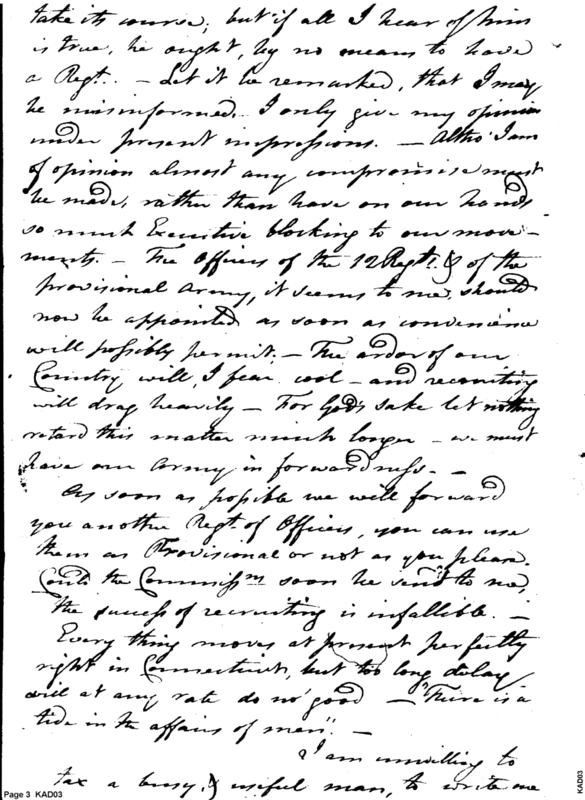 take its course; but if all I hear of him
is true, he ought, by no means to have
a Regt. — Let it be remarked, that I may
be misinformed. I only give my opinion
under present impressions. — Altho' I am
of opinion almost any compromise must
be made, rather than have on our hands
so much Executive blocking to our move-
ments. — The Officers of the 12 Regts. & of the
provisional Army, it seems to me, should
now be appointed as soon as convenience
will possibly permit. — The ardor of our
Country will, I fear, cool — and recruiting
will drag heavily — For God's sake let nothing
retard this matter much longer — we must
have our Army in forwardness. —
As soon as possible we will forward
you another Regt. of Officers, you can use
them as Provisional or not as you please.
Could the Commissns. soon be send to me,
the success of recruiting is infallible. —
Every thing moves at present perfectly
right in Connecticut, but too long delay
will at any rate do no good — "There is a
tide in the affairs of men". —
I am unwilling to
tax a busy, & useful man, to write me
Page 3 KAD03
KAD03